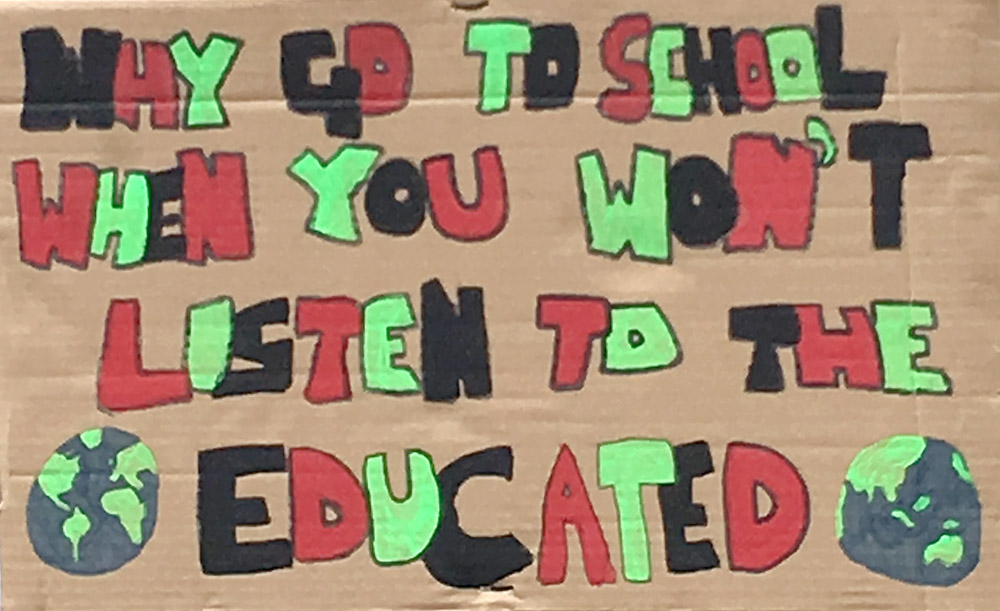 WHY GO TO SCHOOL
WHEN YOU WON'T
LISTEN TO THE
EDUCATED